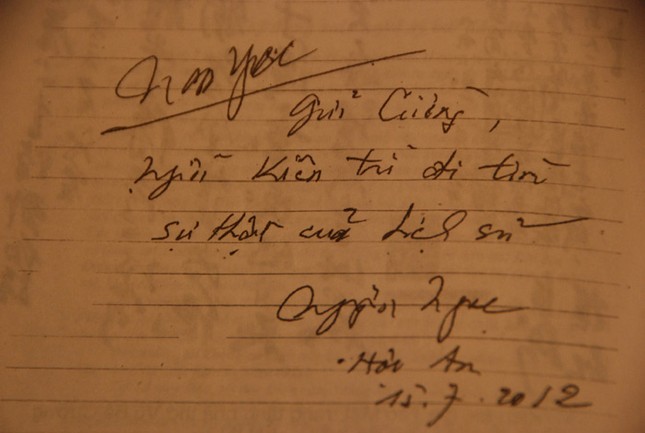 Gửi Cường,
người kiên trì đi tìm
sự thật của lịch sử
Nguyên Ngọc
Hội An
15.7.2012